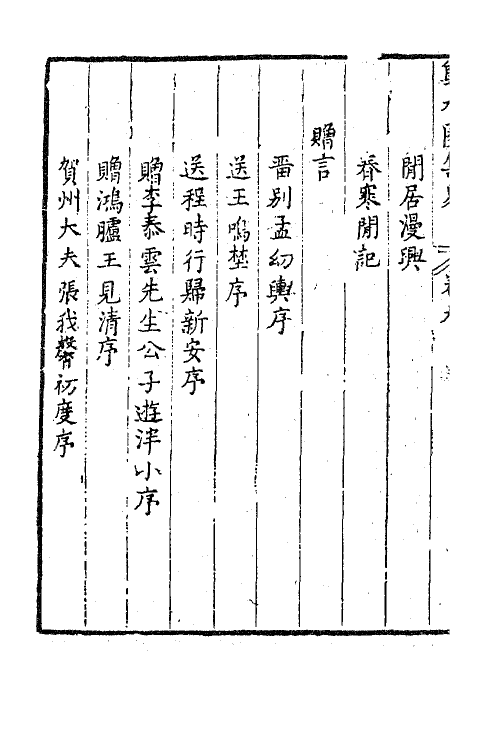 閒居漫興
春寒閒記
贈言
畱別孟幻輿序
送王鳴埜序
送程時行歸新安序
贈李泰雲先生公子遊泮小序
贈鴻臚王見清序
賀州大夫張我繁初度序